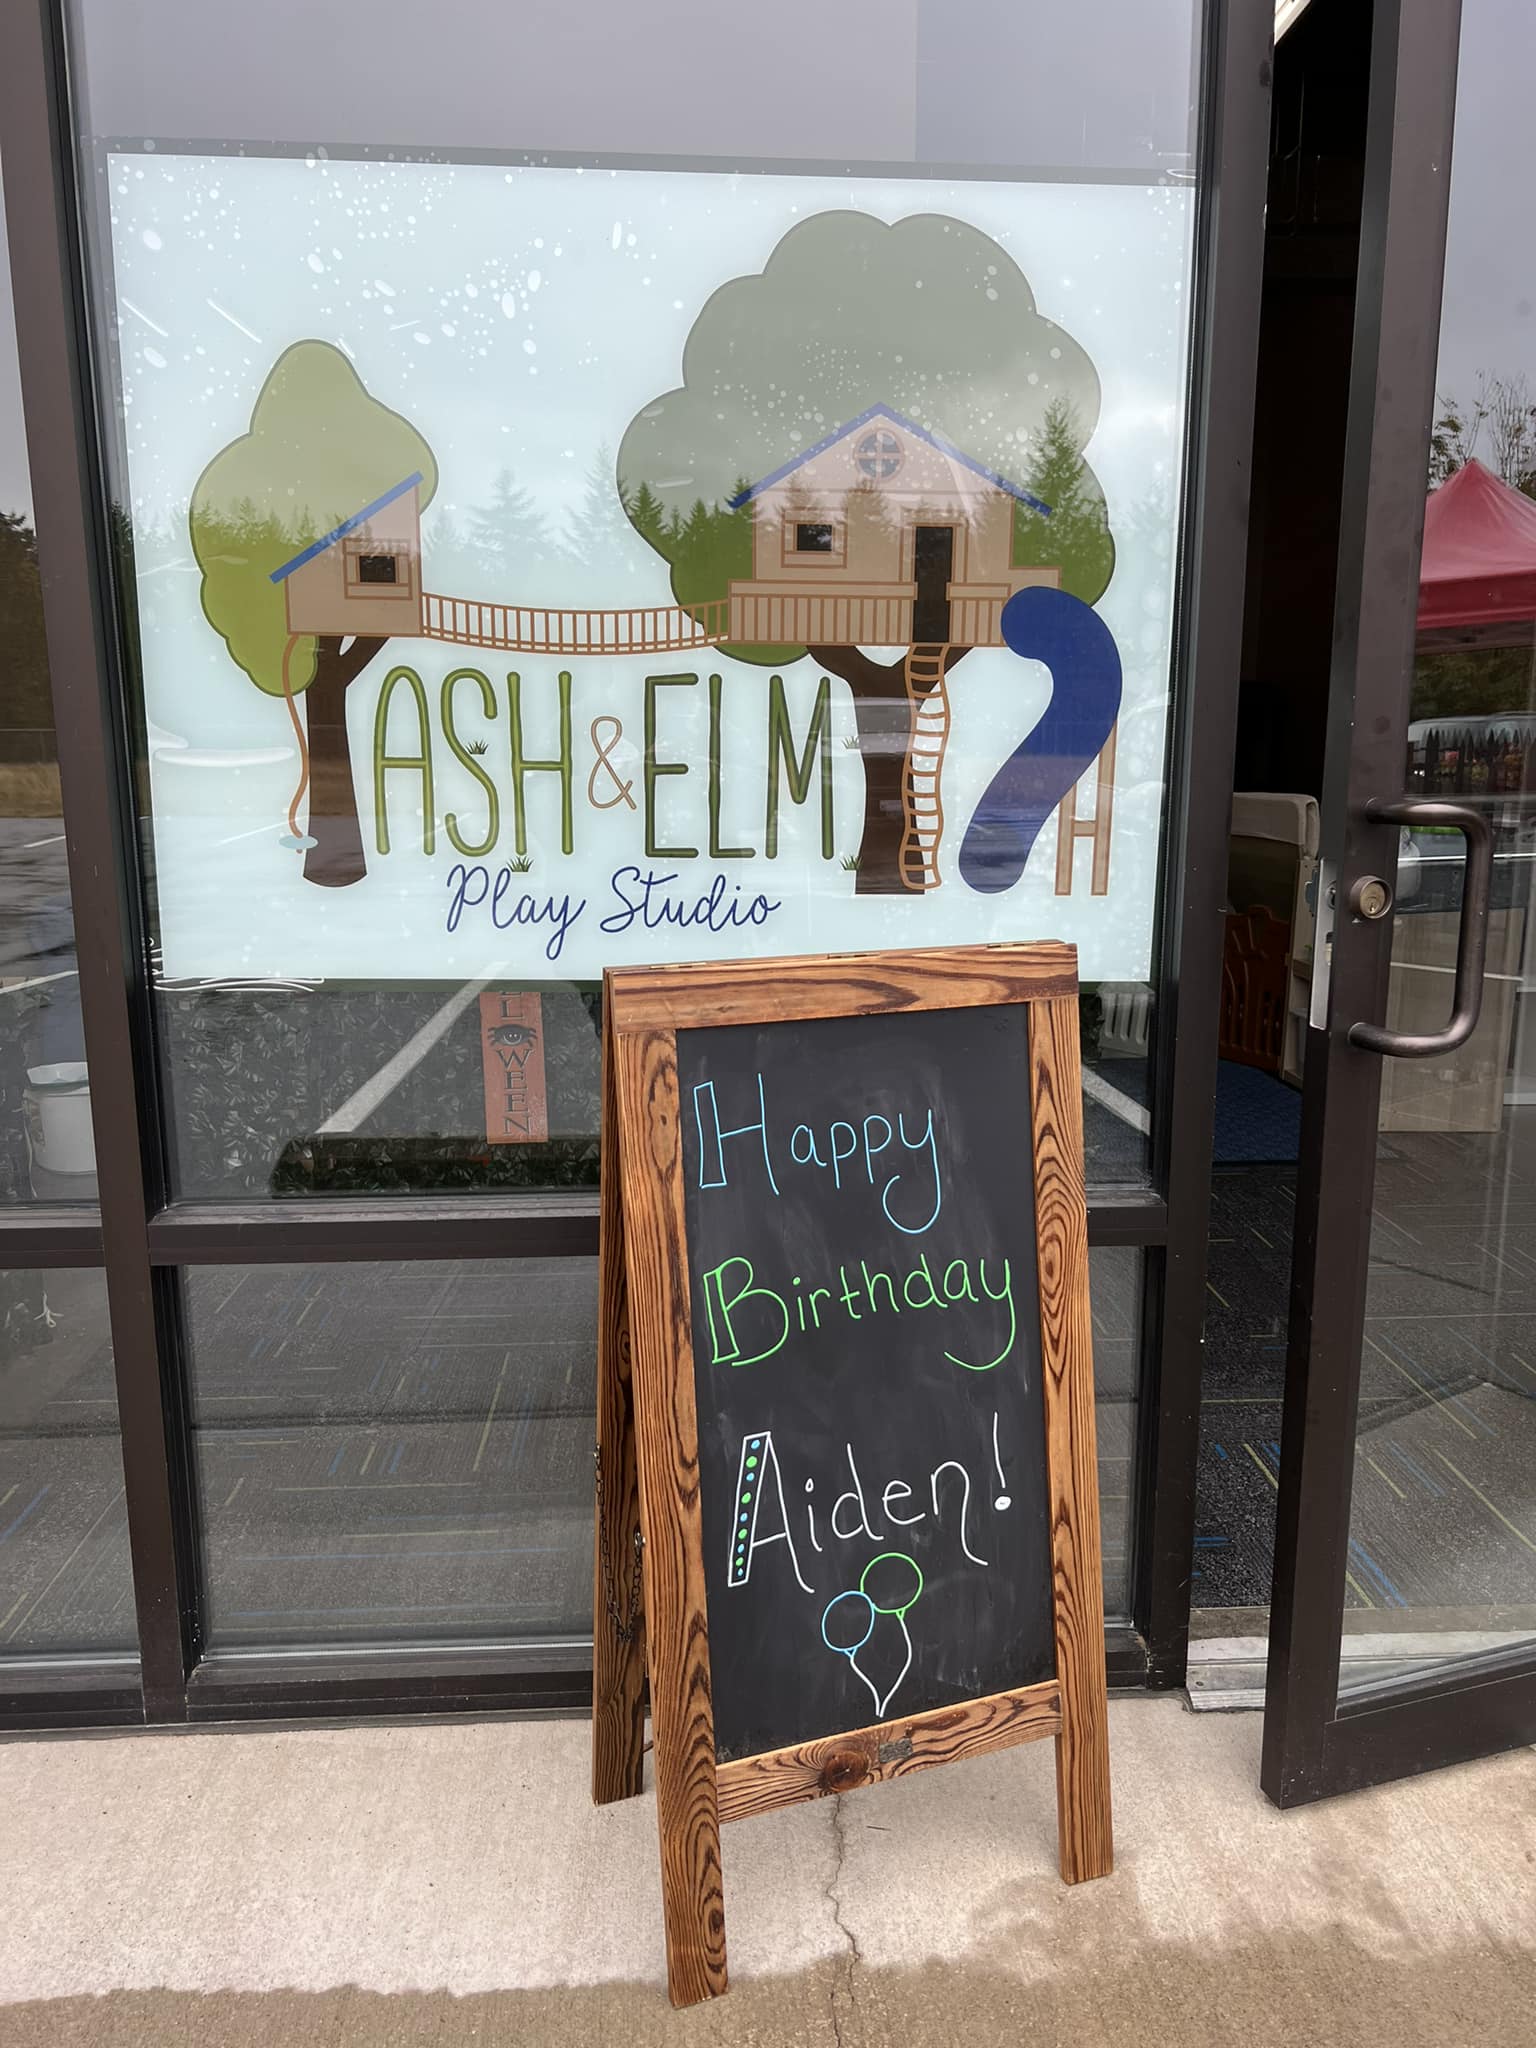 ASH & ELM
Play Studio
L
WEEN
Happy
Birthday
Aiden!